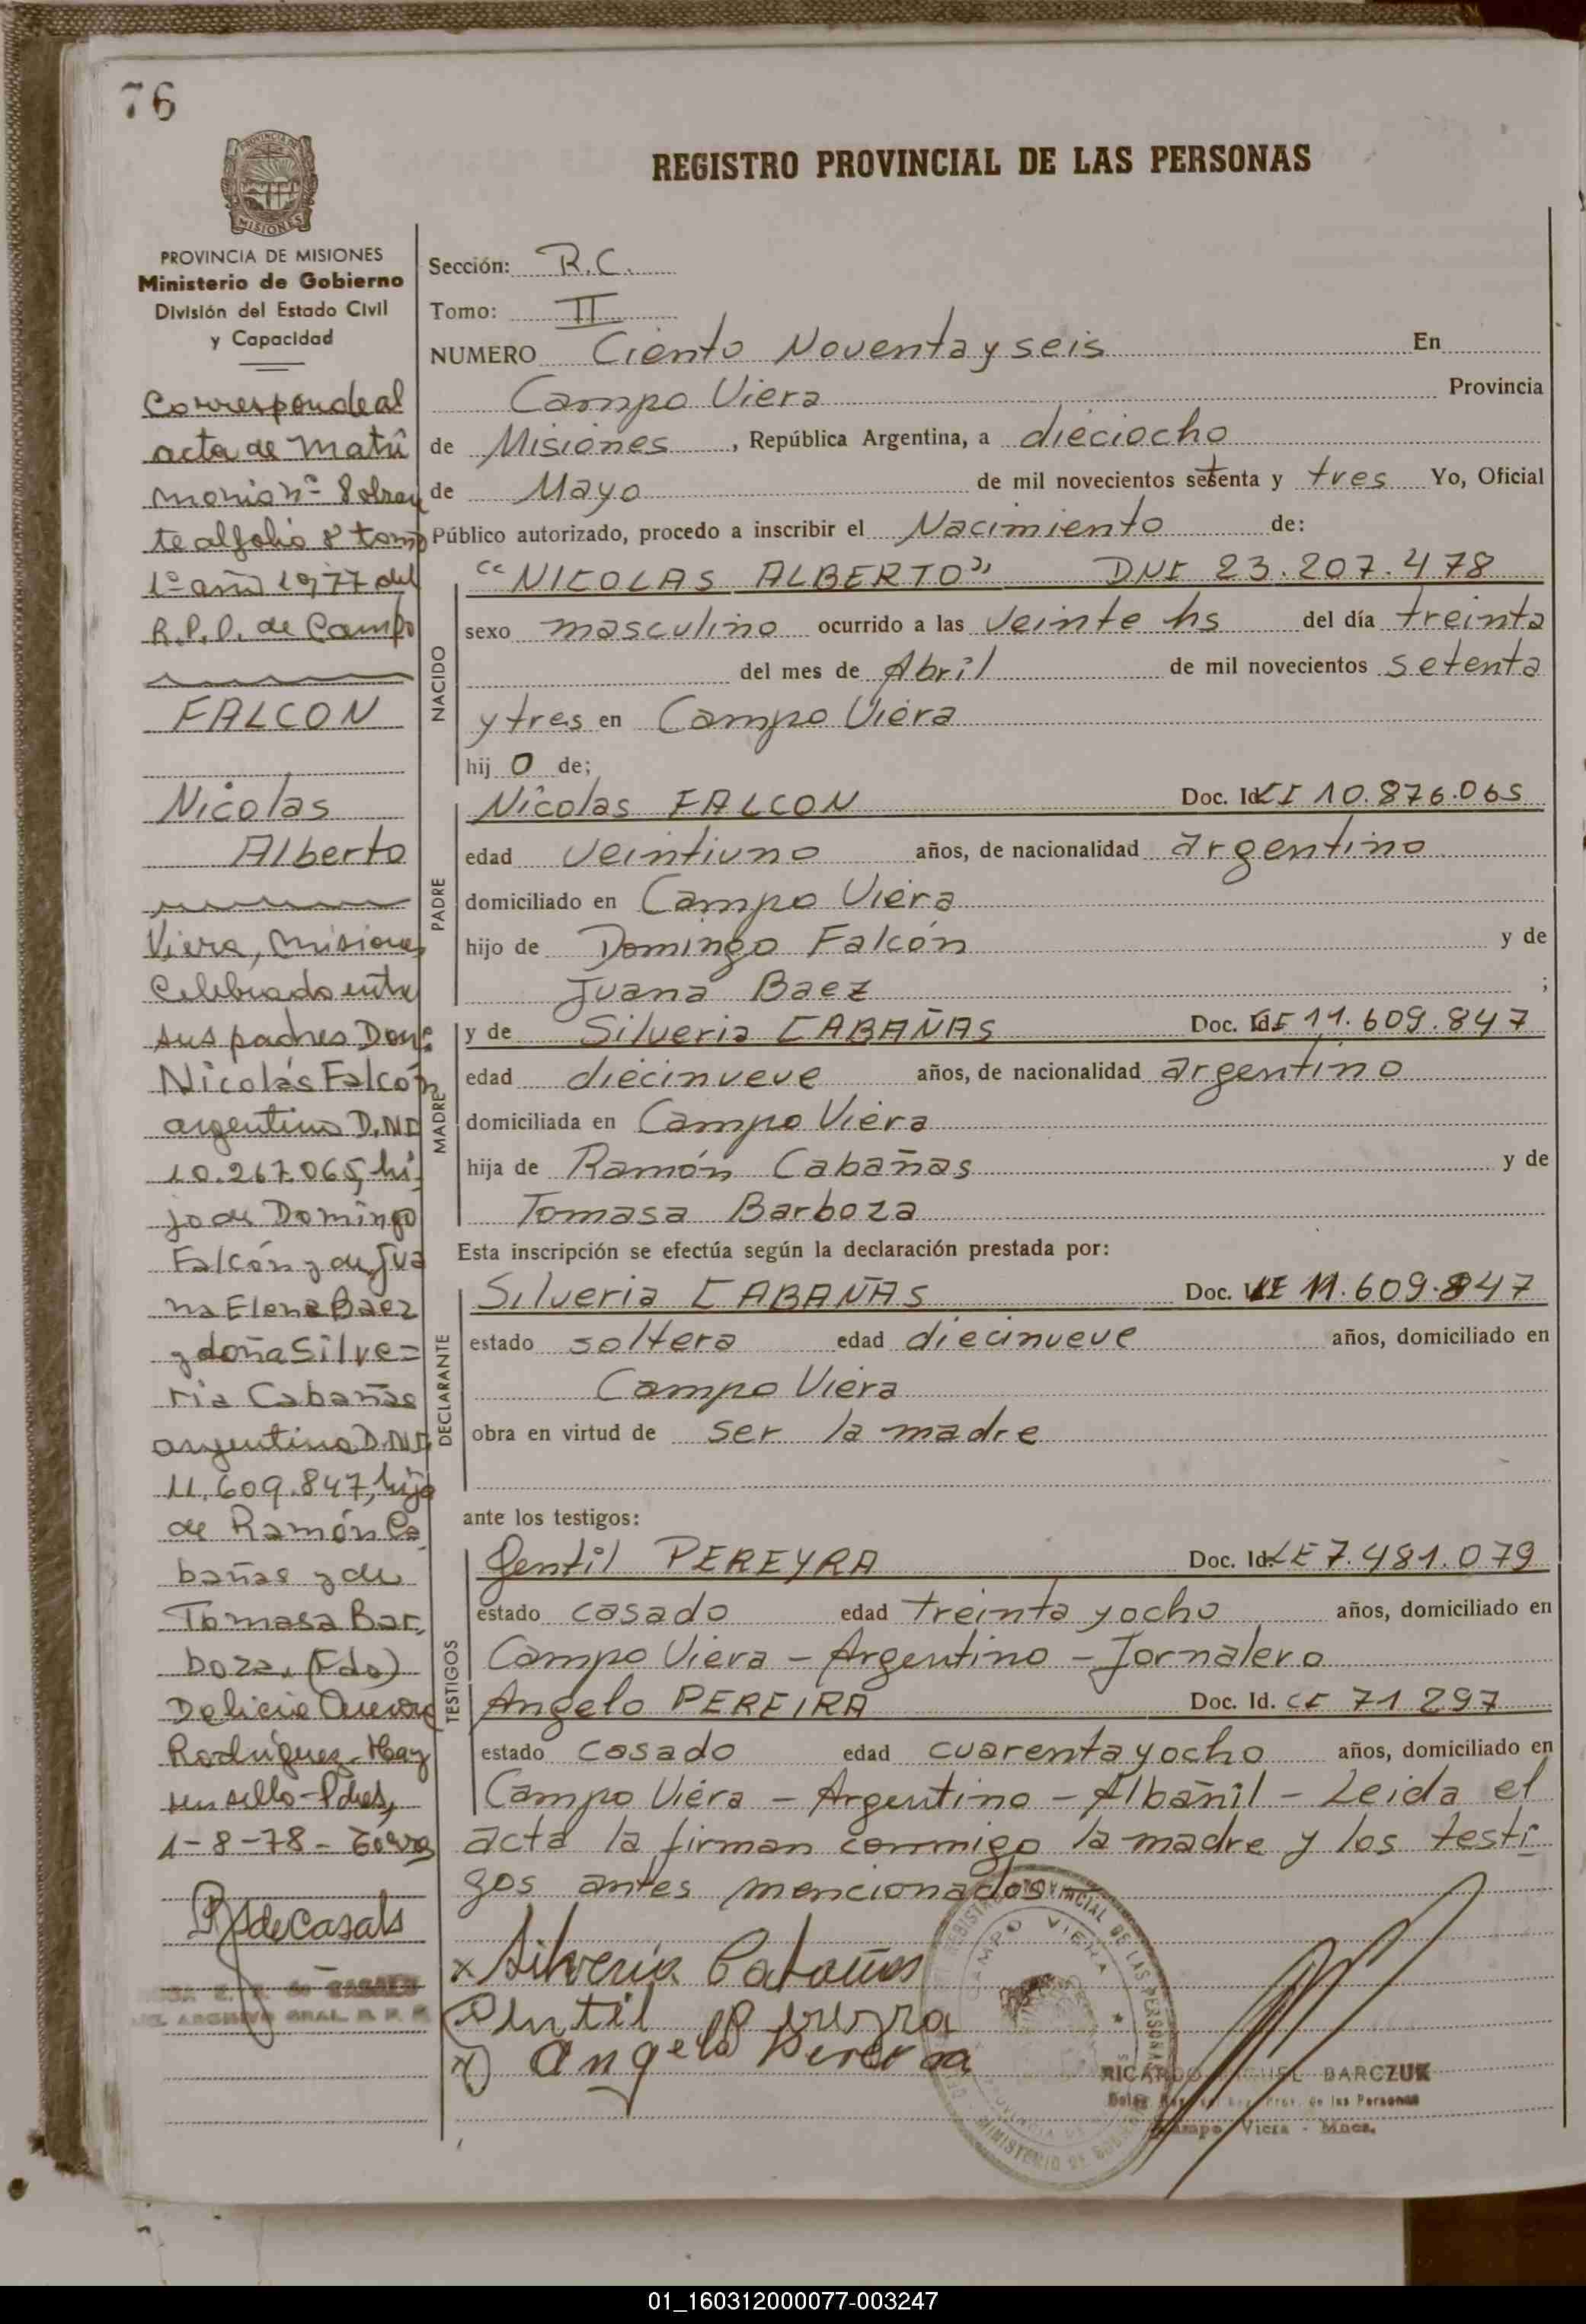 76
PROVINCIA DE MISIONES
Ministerio de Gobierno
División del Estado Civil
y Capacidad
Corresponde al
acta de Matri
monio nº 8 obran
te al folio 8 tomo
1º año 1977 del
R.P.P. de Campo
FALCON
Nicolas
Alberto
Viera, Misiones
Celebrado entre
sus padres Don:
Nicolás Falcón
argentino D.NI
10.267.065, hi
jo de Domingo
Falcón y de Jua
na Elena Baez
y doña Silve=
ria Cabañas
argentina D.NI.
11.609.847, hija
de Ramón Ca
bañas y de
Tomasa Bar
boza. (Fdo)
Delicia
Rodríguez. Hay
un sello - Pdas,
1-8-78 -
REGISTRO PROVINCIAL DE LAS PERSONAS
Sección: R.C.
Tomo: II
NUMERO Ciento Noventa y seis En
Campo Viera Provincia
de Misiones, República Argentina, a dieciocho
de Mayo de mil novecientos setenta y tres Yo, Oficial
Público autorizado, procedo a inscribir el Nacimiento de:
NACIDO
"NICOLAS ALBERTO" DNI 23.207.478
sexo masculino ocurrido a las veinte hs del día treinta
del mes de Abril de mil novecientos setenta
y tres en Campo Viera
hij o de;
PADRE
Nicolas FALCON Doc. Id. CI 10.876.065
edad veintiuno años, de nacionalidad argentino
domiciliado en Campo Viera
hijo de Domingo Falcón y de
Juana Baez ;
MADRE
y de Silveria CABAÑAS Doc. Id. 11.609.847
edad diecinueve años, de nacionalidad argentino
domiciliada en Campo Viera
hija de Ramón Cabañas y de
Tomasa Barboza
Esta inscripción se efectúa según la declaración prestada por:
DECLARANTE
Silveria CABAÑAS Doc. 11.609.847
estado soltera edad diecinueve años, domiciliado en
Campo Viera
obra en virtud de ser la madre
ante los testigos:
TESTIGOS
Gentil PEREYRA Doc. Id. LE 7.481.079
estado casado edad treinta y ocho años, domiciliado en
Campo Viera - Argentino - Jornalero
Angelo PEREIRA Doc. Id. CF 71.297
estado casado edad cuarenta y ocho años, domiciliado en
Campo Viera - Argentino - Albañil - Leida el
acta la firman conmigo la madre y los testi
gos antes mencionados -
x Silveria Cabañas
Gentil Pereyra
x) Angelo Pereira
CAMPO VIERA
RICARDO MIGUEL BARCZUK
de las Personas
Campo Viera - Mnes.
01_160312000077-003247